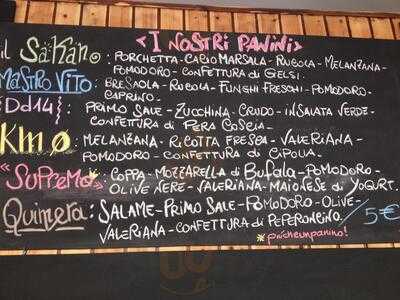 <I NOSTRI PANINI>
il SaKano: PORCHETTA - CACIO MARSALA - RUCOLA - MELANZANA -
POMODORO - CONFETTURA di GELSI.
MASTRO VITO: BRESAOLA - RUCOLA - FUNGHI FRESCHI - POMODORO -
CAPRINO -
{Dd14}: PRIMO SALE - ZUCCHINA - CRUDO - INSALATA VERDE -
CONFETTURA di PERA COSCIA -
Km0: MELANZANA - RICOTTA FRESCA - VALERIANA -
POMODORO - CONFETTURA di CIPOLLA.
"SUPREMO*": COPPA - MOZZARELLA di BUFALA - POMODORO -
OLIVE NERE - VALERIANA - MAIONESE di YOGURT.
Quimera: SALAME - PRIMO SALE - POMODORO - OLIVE -
VALERIANA - CONFETTURA di PEPERONCINO / 5€
*più che un panino!